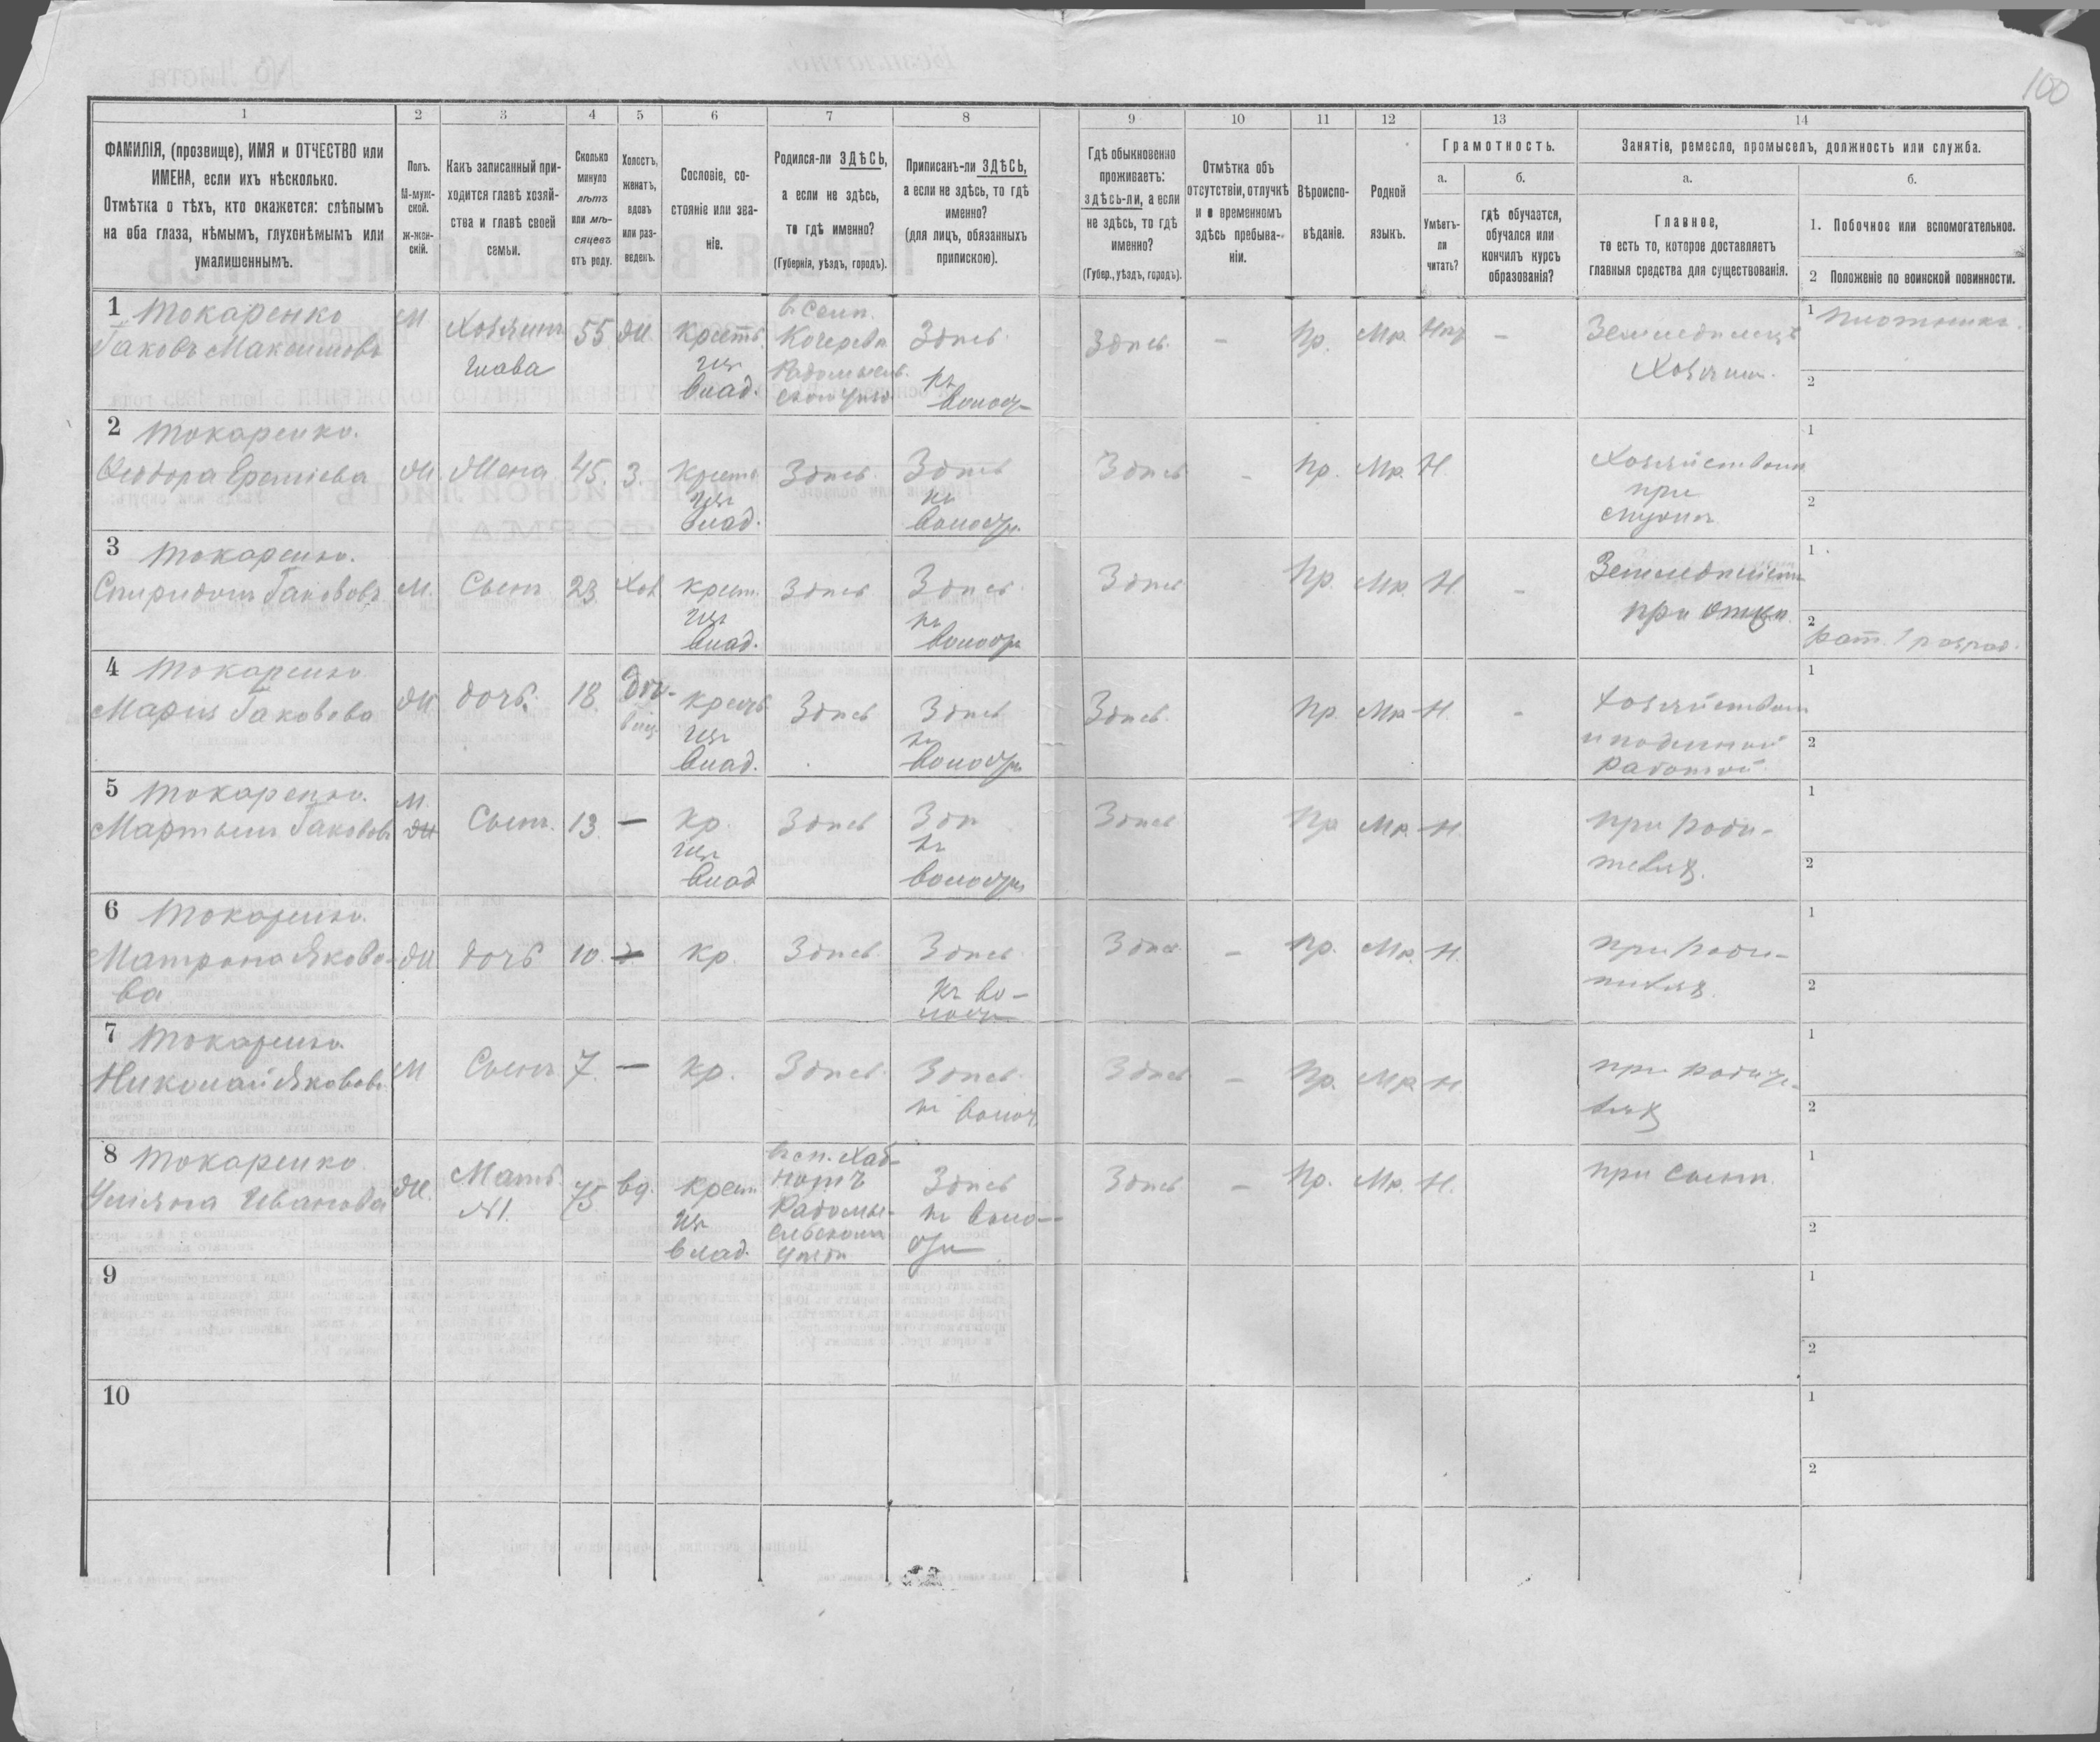 100
1
2
3
4
5
6
7
8
9
10
11
12
13
14
ФАМИЛІЯ, (прозвище), ИМЯ и ОТЧЕСТВО или
ИМЕНА, если ихъ нѣсколько.
Отмѣтка о тѣхъ, кто окажется: слѣпымъ
на оба глаза, нѣмымъ, глухонѣмымъ или
умалишеннымъ.
Полъ.
М-муж-
ской.
ж-жен-
скій.
Какъ записанный при-
ходится главѣ хозяй-
ства и главѣ своей
семьи.
Сколько
минуло
лѣтъ
или мѣ-
сяцевъ
отъ роду.
Холостъ,
женатъ,
вдовъ
или раз-
веденъ.
Сословіе, со-
стояніе или зва-
ніе.
Родился-ли ЗДѢСЬ,
а если не здѣсь,
то гдѣ именно?
(Губернія, уѣздъ, городъ).
Приписанъ-ли ЗДѢСЬ,
а если не здѣсь, то гдѣ
именно?
(для лицъ, обязанныхъ
припискою).
Гдѣ обыкновенно
проживаетъ:
здѣсь-ли, а если
не здѣсь, то гдѣ
именно?
(Губер., уѣздъ, городъ).
Отмѣтка объ
отсутствіи, отлучкѣ
и о временномъ
здѣсь пребыва-
ніи.
Вѣроиспо-
вѣданіе.
Родной
языкъ.
Грамотность.
а.
Умѣетъ-
ли
читать?
б.
гдѣ обучается,
обучался или
кончилъ курсъ
образованія?
Занятіе, ремесло, промыселъ, должность или служба.
а.
Главное,
то есть то, которое доставляетъ
главныя средства для существованія.
б.
1. Побочное или вспомогательное.
2 Положеніе по воинской повинности.
1 Токаренко
Іаковъ Максимовъ
М
Хозяинъ
глава
55
Ж
крестъ.
изъ
влад.
в Селѣ
Кочеревѣ
Радомысль-
скомъ уѣздѣ
Здѣсь
къ
волости
Здѣсь
-
Пр.
Мр.
Нѣтъ
-
Земледѣлецъ
Хозяинъ.
1 Плотникъ.
2
2 Токаренко.
Феодора Ереміева
Ж
Жена
45.
З.
крестъ
изъ
влад.
Здѣсь.
Здѣсь
къ
волости
Здѣсь
-
Пр.
Мр.
Н.
Хозяйствомъ
при
мужѣ
1
2
3 Токаренко.
Спиридонъ Іакововъ
М.
Сынъ
23
Хол
крест.
изъ
влад.
Здѣсь
Здѣсь
къ
волости
Здѣсь
Пр.
Мр.
Н
-
Земледѣліемъ
при отцѣ
1
2
рат. 1 разряд.
4 Токаренко
Мария Іаковова
Ж
дочь
18.
крестъ
изъ
влад.
Здѣсь
Здѣсь
къ
волости
Здѣсь.
Пр.
Мр
Н.
-
Хозяйствомъ
и поденной
работой
1
2
5 Токаренко.
Мартынъ Іакововъ
М.
Ж
Сынъ.
13.
—
кр.
изъ
влад
Здѣсь
Здѣ
къ
волости
Здѣсь
Пр
Мр.
Н.
при роди-
теляхъ.
1
2
6 Токаренко.
Матрона Яково-
ва
Ж
дочь
10.
—
кр.
Здѣсь.
Здѣсь
къ во-
лости
Здѣсь
-
Пр.
Мр.
Н.
при роди-
теляхъ
1
2
7 Токаренко.
Николай Якововъ
М
Сынъ
7.
—
кр.
Здѣсь.
Здѣсь
къ волост.
Здѣсь
-
Пр.
Мр
Н
при родите-
ляхъ
1
2
8 Токаренко.
Ульяна Иванова
Ж.
Мать
№1.
75
вд.
крест
изъ
влад.
Радомы-
сльскомъ
уѣздѣ
Здѣсь
къ воло-
сти
Здѣсь
-
Пр.
Мр.
Н.
при сынѣ.
1
2
9
1
2
10
1
2